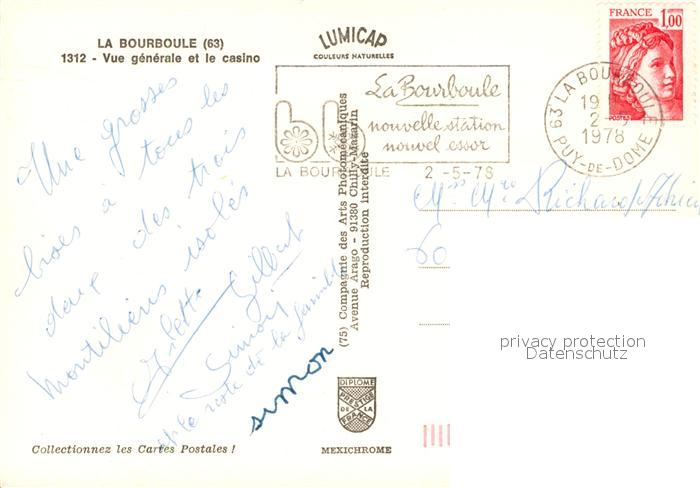 LA BOURBOULE (63)
1312 - Vue générale et le casino
LUMICAP
COULEURS NATURELLES
FRANCE 1,00
POSTES
La Bourboule
nouvelle station
nouvel essor
LA BOURBOULE 2-5-78
63 LA BOURBOULE
19
2-5
1978
PUY-DE-DOME
Une grosses
bises à tous les
deux des trois
Montiliens isolés
Arlette Gilbert
Simon
et le reste de la famille
simon
(75) Compagnie des Arts Photomécaniques
Avenue Arago - 91380 Chilly-Mazarin
Reproduction interdite
Richard
60
privacy protection
Datenschutz
DIPLOME
PRESTIGE
DE LA
FRANCE
Collectionnez les Cartes Postales !
MEXICHROME